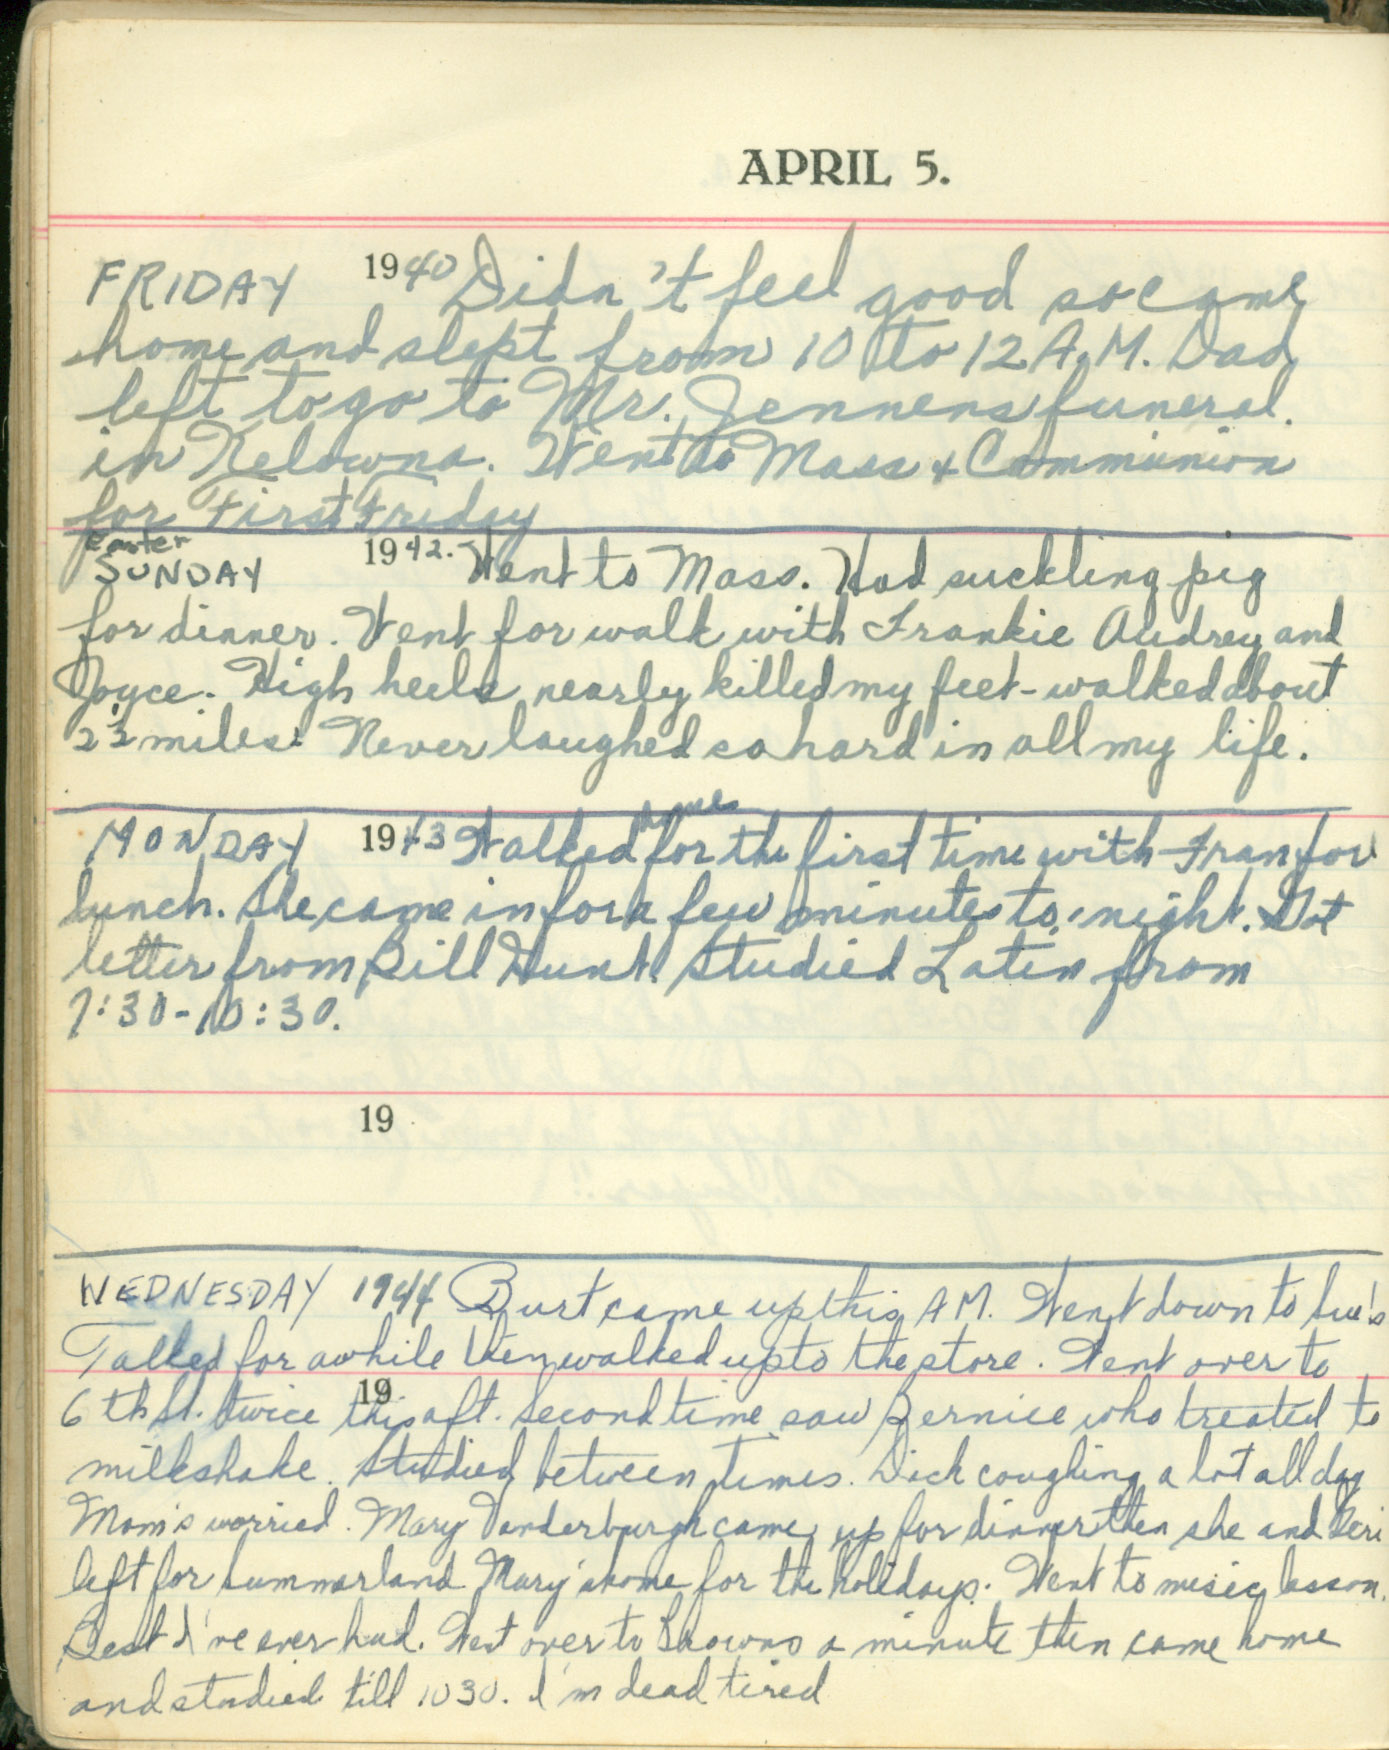 APRIL 5.
FRIDAY 1940 Didn't feel good so came
home and slept from 10 to 12 A.M. Dad
left to go to Mr. Jennens funeral.
in Kelowna. Went to Mass + Communion
for First Friday
Easter
SUNDAY 1942. Went to Mass. Had suckling pig
for dinner. Went for walk with Frankie Audrey and
Joyce. High heels nearly killed my feet - walked about
2½ miles. Never laughed so hard in all my life.
home
MONDAY 1943 Walked for the first time with Fran for
lunch. She came in for a few minutes to-night. Got
letter from Bill Hunt. Studied Latin from
7:30-10:30.
19
WEDNESDAY 1944 Burt came up this A.M. Went down to Sue's
Talked for awhile then walked up to the store. Went over to
19
6th St. twice this aft. Second time saw Bernice who treated to
milkshake. Studied between times. Dick coughing a lot all day
Mom's worried. Mary Vanderburgh came up for dinner then she and
left for Summerland Mary's home for the holidays. Went to music lesson.
Best I've ever had. Went over to Browns a minute then came home
and studied till 1030. I'm dead tired